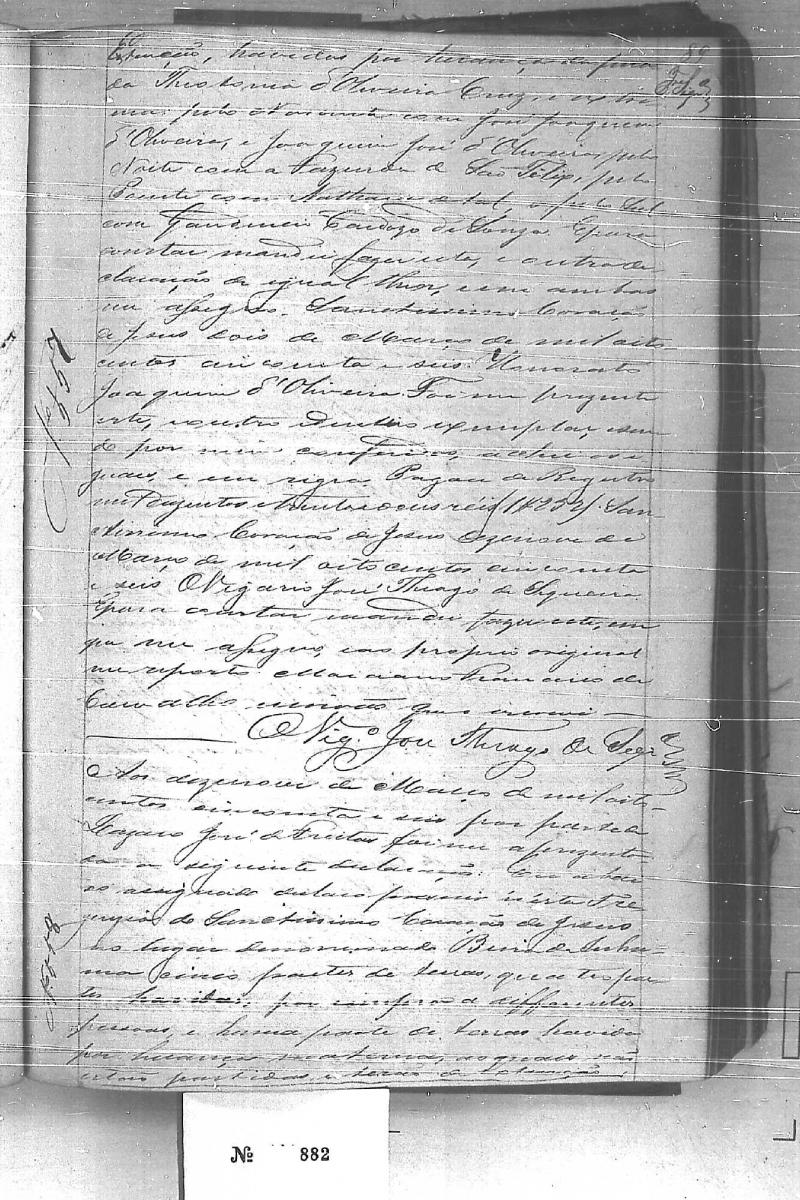 havidas por herança da fina
da Theotonia d'Oliveira Cruz, e extre
ma pelo Nascente com José Joaquim
d'Oliveira, e Joaquim José d'Oliveira, pelo
Norte com a Fazenda de São Felip, pelo
Poente com Nathan de tal e pelo Sul
com Gaudencio Cardozo de Souza. Epara
constar mandei fazer este, e outro de
claração de igual theor, e em ambos
me assigno. Sanctissimo Coração
de Jesus dois de Março de mil oito
centos cincoenta e seis. Honorato
Joaquim d'Oliveira. Foi me prezente
este, e outro identico exemplar, e sen
do por mim conferidos, achei os i
guaes, e em regra. Pagou de Registro
mil duzentos e trinta e dois réis (1$232). San
ctissimo Coração de Jesus dezenove de
Março de mil oito centos cincoenta
e seis. O Vigario José Thiago de Siqueira
Epara constar mandei fazer este, em
que me assigno, e ao proprio original
me reporto. Marianno Francisco de
Carvalho escrivão que escrevi —
O Vig.º José Thiago de Siqr.ª
Aos dezenove de Março de mil oito
centos cincoenta e seis por parte de
Lazaro José de Freitas foi me aprezenta
da a seguinte declaração: Eu abai
xo assignado declaro possuir nesta Fre
guezia do Sanctissimo Coração de Jesus
no lugar denominado
cinco partes de terras, quatro par
tes havidas por compras a differentes
pessoas, e huma parte de terras havida
por herança materna, as quaes não
estão partidas, e terão de extenção
Nº 882